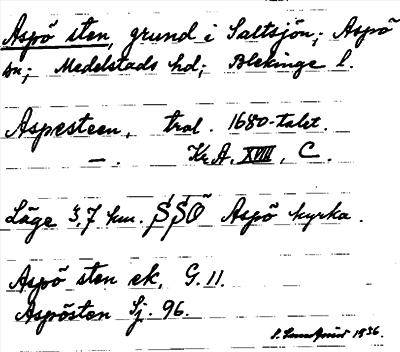 Aspö sten, grund i Saltsjön; Aspö
sn; Medelstads hd; Blekinge l.
Aspesteen, trol. 1680-talet.
— . Kr.A. XVIII, C.
Läge 3,7 km. SSÖ Aspö kyrka.
Aspö sten ek. G. 11.
Aspösten Sj. 96.
1936.